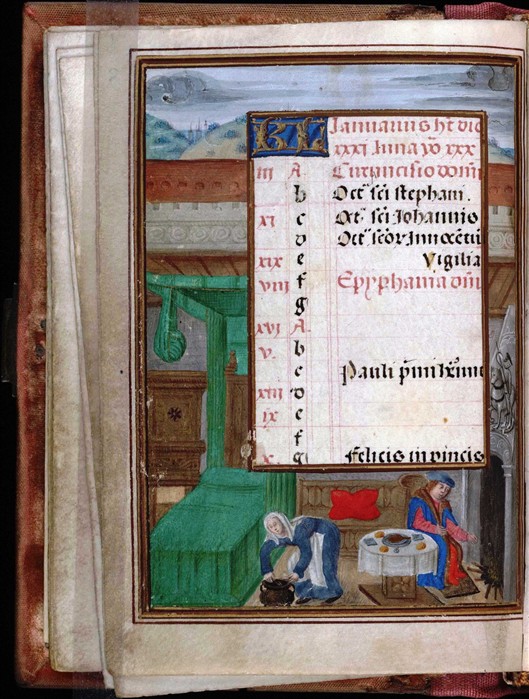 KL Januarius ht̄ die
xxxi luna v̄o xxx
iii A. Circuncisio domi
b Octa sci stepham.
xi c Oct sci Johannis
d Octa scōr Innocētū
xix e Vigilia
viii f Epyphania dm̄i
g
xvi A.
v. b
c Pauli pⁱmi
xiii d
ix e
f
x g Felicis in pincis